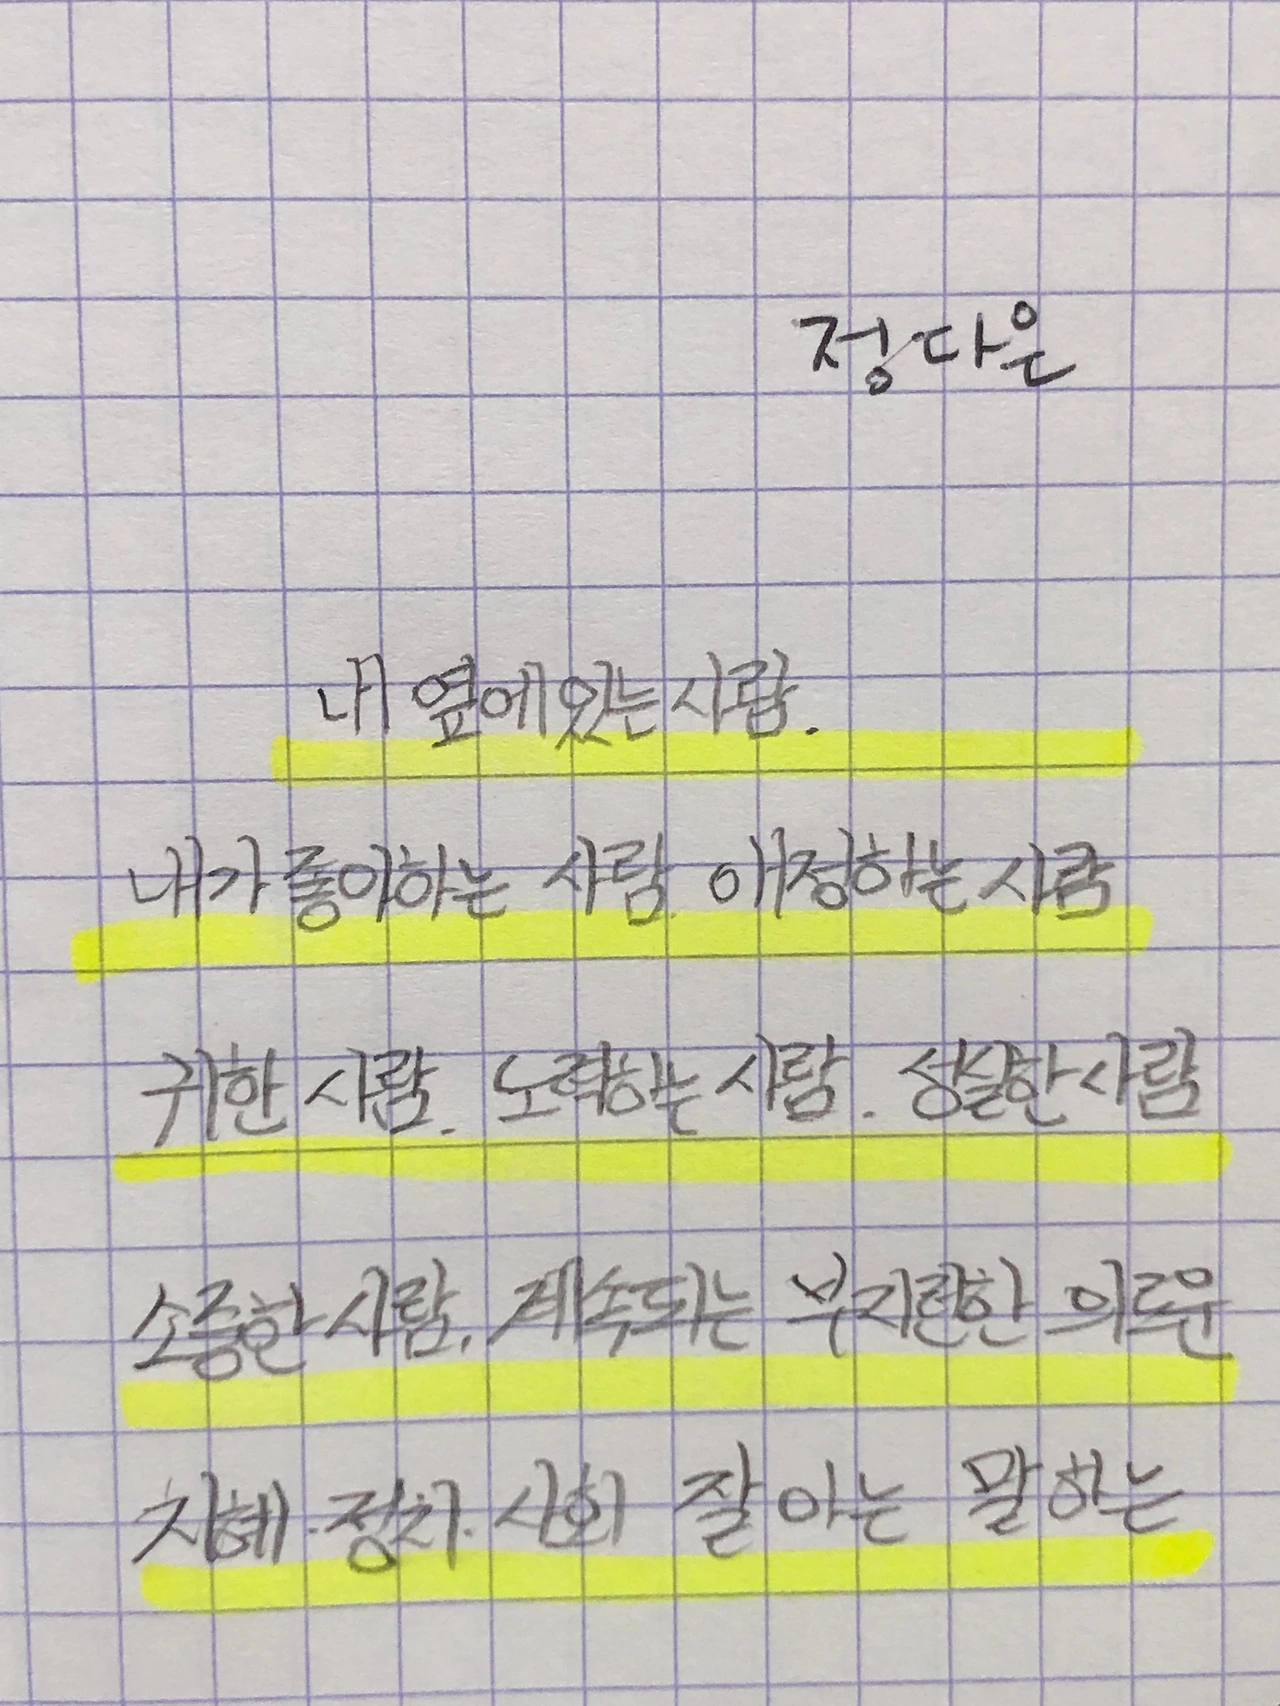 정다은
내 옆에 있는 사람.
내가 좋아하는 사람. 애정하는 사람
귀한 사람. 노력하는 사람. 성실한 사람
소중한 사람. 계속되는 부지런한 의로운
지혜. 정치. 사회 잘 아는 말하는